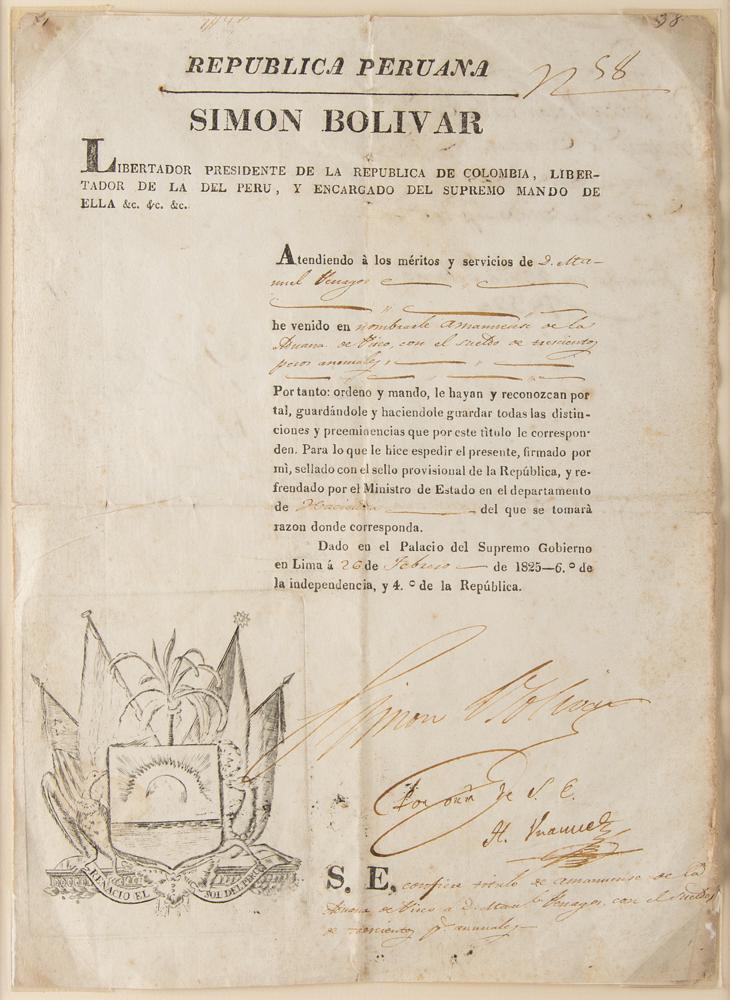 38
REPUBLICA PERUANA
N 58
SIMON BOLIVAR
LIBERTADOR PRESIDENTE DE LA REPUBLICA DE COLOMBIA, LIBER-
TADOR DE LA DEL PERU, Y ENCARGADO DEL SUPREMO MANDO DE
ELLA &c. &c. &c.
Atendiendo à los méritos y servicios de D. Ma-
nuel Venagos
he venido en nombrarle Amanuense de la
Aduana de Pisco, con el sueldo de trescientos
pesos annuales
Por tanto: ordeno y mando, le hayan y reconozcan por
tal, guardándole y haciendole guardar todas las distin-
ciones y preeminencias que por este tìtulo le correspon-
den. Para lo que le hice espedir el presente, firmado por
mì, sellado con el sello provisional de la República, y re-
frendado por el Ministro de Estado en el departamento
de Hacienda del que se tomarà
razon donde corresponda.
Dado en el Palacio del Supremo Gobierno
en Lima á 26 de Febrero de 1825—6.º de
la independencia, y 4.º de la República.
Simon Bolivar
Por orn de S. E.
RENACIO EL SOL DEL PERU
S. E. confiere título de Amanuense de la
Aduana de Pisco a D. Manl Venagos, con el sueldo
de trescientos ps annuales